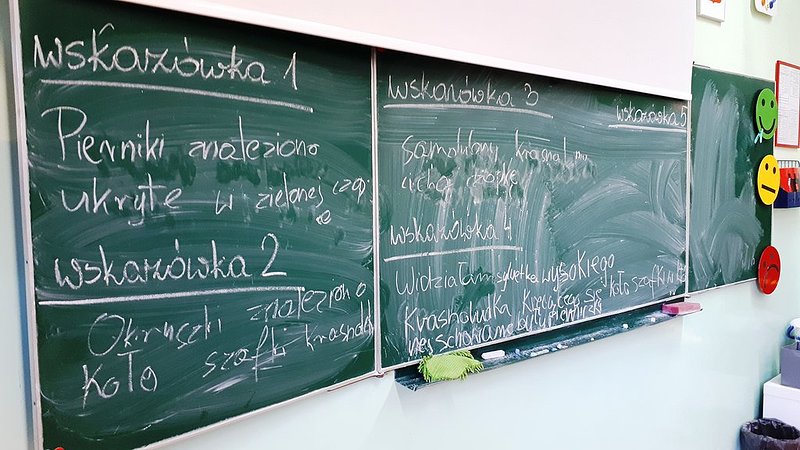 wskazówka 1
Pierniki znaleziono
ukryte w zielonej czap
ce
wskazówka 2
Okruszki znaleziono
koło szafki krasnola
wskazówka 3
samolubny krasnal ma
czapkę
wskazówka 4
Widziałam sylwetkę wysokiego
krasnoludka kręcącego się koło szafki w
niej schowane były pierniczki
wskazówka 5